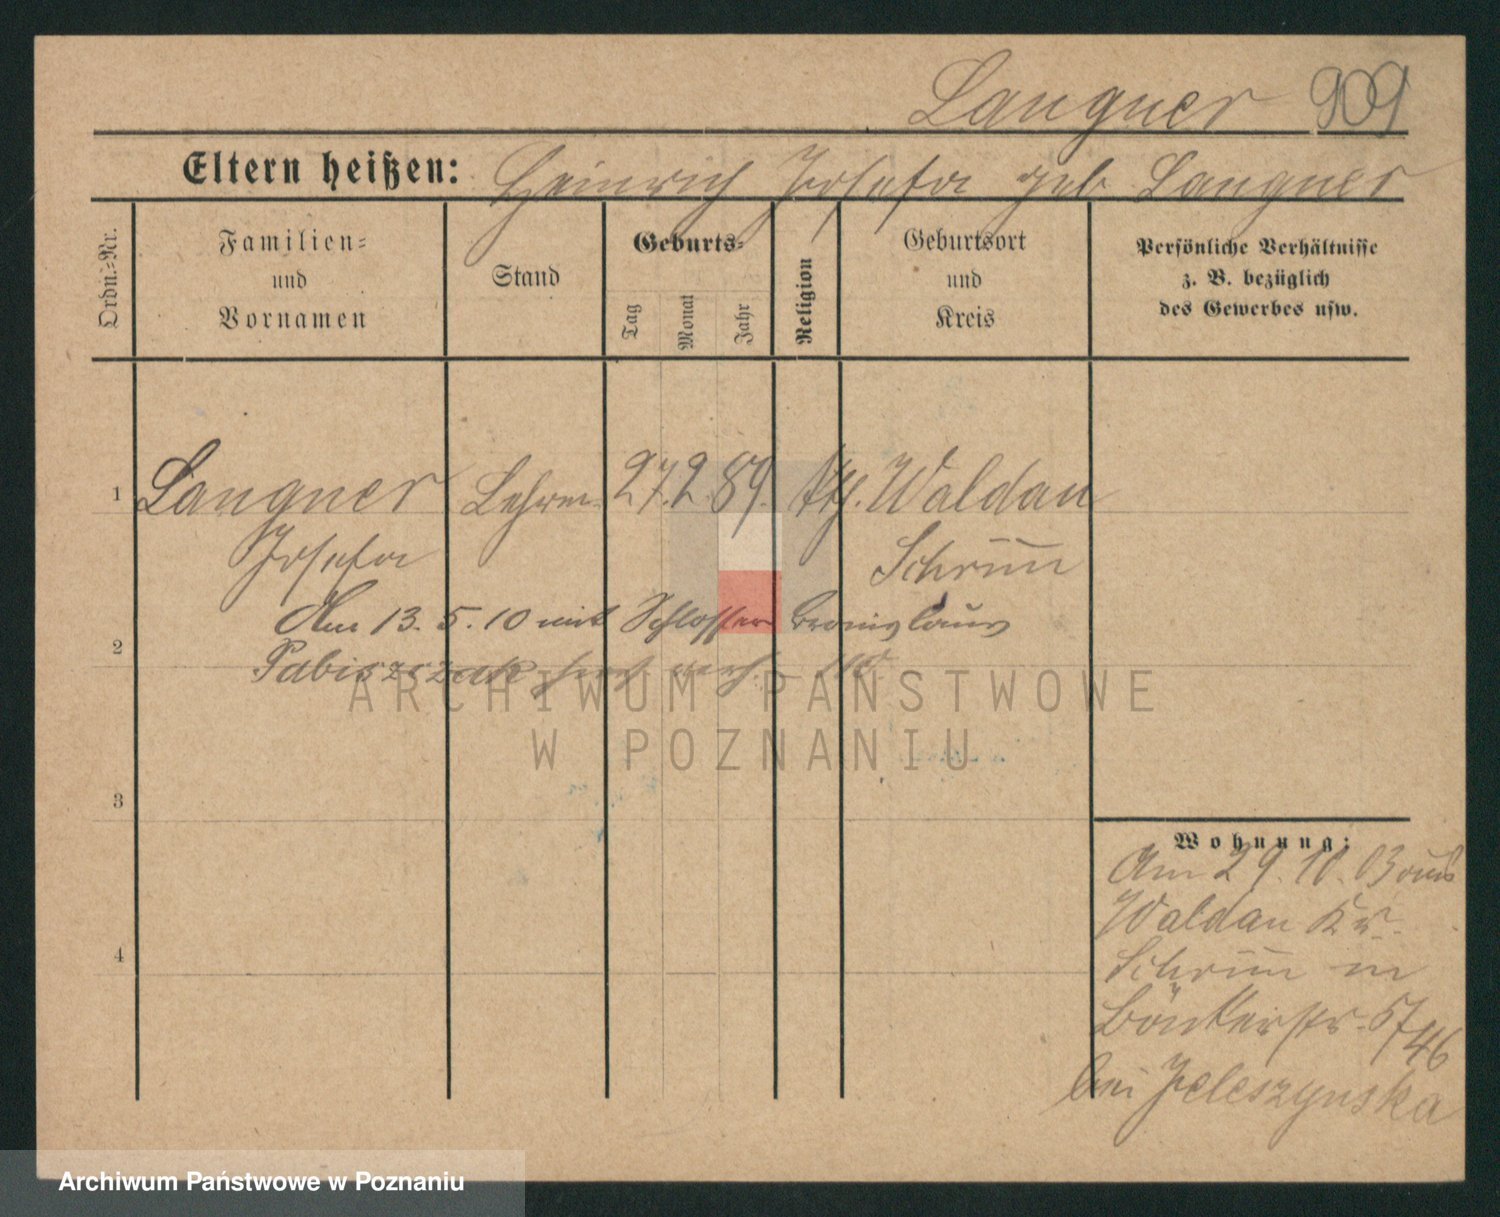 Langner 909
Eltern heißen: Heinrich Josefa geb Langner
Ordn.=Nr.
Familien=
und
Vornamen
Stand
Geburts=
Tag
Monat
Jahr
Religion
Geburtsort
und
Kreis
Persönliche Verhältnisse
z. B. bezüglich
des Gewerbes usw.
1 Langner 27. 2. 89. kth. Waldau
Josefa Schrimm
Am 13. 5. 10 mit Schlosser Bronislaus
2
Pabiszczak hier verh.
ARCHIWUM PAŃSTWOWE
W POZNANIU
3
Wohnung:
Am 29. 10. 03 aus
Waldau Kr.
4
Schrimm in
bei Jeleszynska
Archiwum Państwowe w Poznaniu